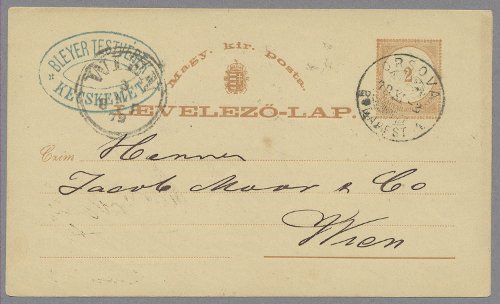 BLEYER TESTVÉREK
KECSKEMÉT
Magy. kir. posta.
LEVELEZŐ-LAP.
2
ORSOVA
BUDAPEST
79
Czim
Herren
Jacob Moor & Co
Wien